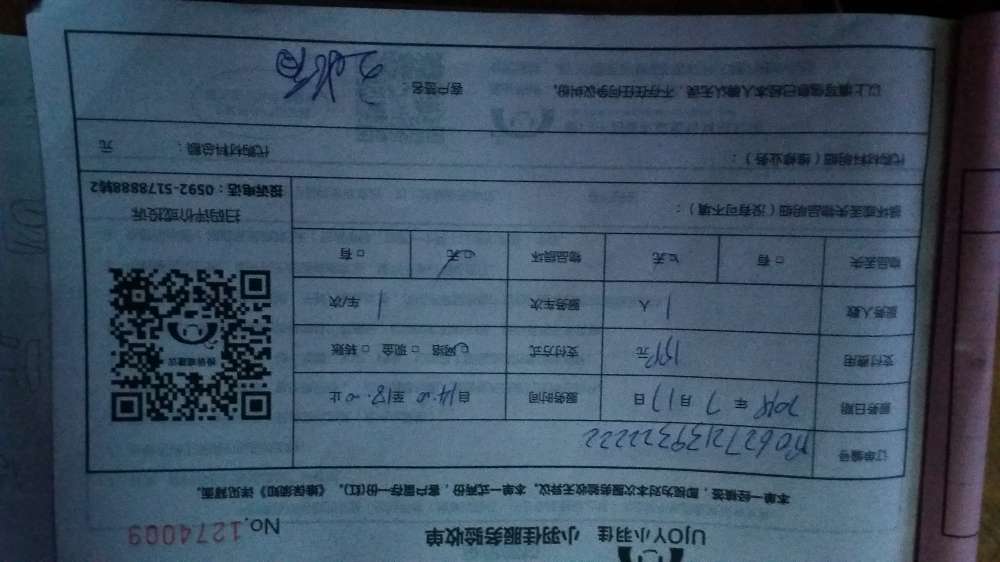 UJOY小羽佳 小羽佳服务验收单 No.1274009
本单一经填签，即视为对本次服务验收无异议。本单一式两份，客户留存一份(红)。《维保须知》详见背面。
订单编号
服务日期 年 7 月 17 日 服务时间 自14:00至18:00止
支付费用 199元 支付方式 ☑网络 □现金 □转账
服务人数 1人 服务车次 1车/次
物品丢失 □有 ☑无 物品损坏 ☑无 □有
投诉或建议
损坏或丢失物品明细（没有可不填）：
扫码评价或投诉
投诉电话：0592-5178888转2
代购材料明细（维修业务）： 代购材料总额： 元
以上填写信息已经本人确认无误，不存在任何争议纠纷。 客户签名：